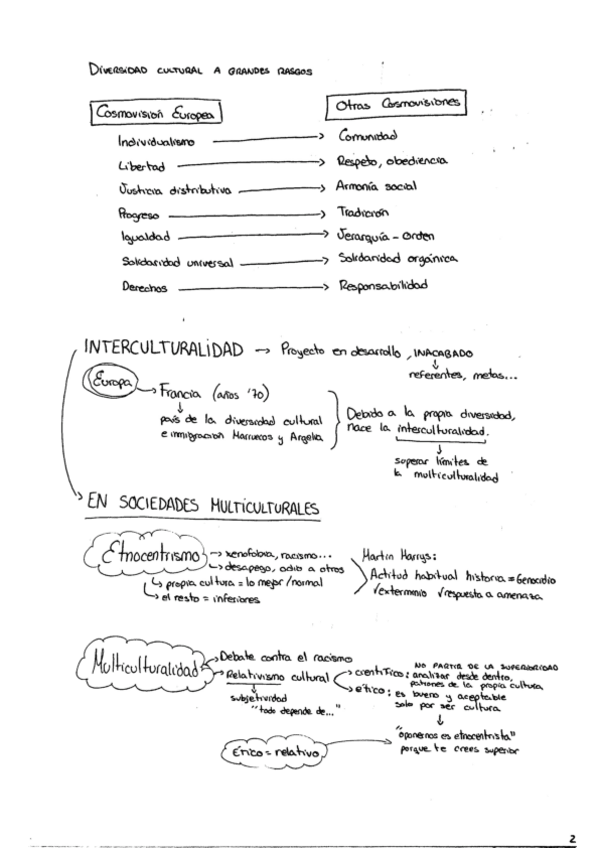 DIVERSIDAD CULTURAL A GRANDES RASGOS
Cosmovisión Europea
Otras Cosmovisiones
Individualismo → Comunidad
Libertad → Respeto, obediencia
Justicia distributiva → Armonía social
Progreso → Tradición
Igualdad → Jerarquía - Orden
Solidaridad universal → Solidaridad orgánica
Derechos → Responsabilidad
INTERCULTURALIDAD → Proyecto en desarrollo, INACABADO
referentes, metas...
Europa → Francia (años '70)
país de la diversidad cultural
e inmigración Marruecos y Argelia
Debido a la propia diversidad,
nace la interculturalidad.
superar límites de
la multiculturalidad
EN SOCIEDADES MULTICULTURALES
Etnocentrismo
→ xenofobia, racismo...
→ desapego, odio a otros
→ propia cultura = lo mejor/normal
→ el resto = inferiores
Martin Harrys:
Actitud habitual historia = Genocidio
√exterminio √respuesta a amenaza
Multiculturalidad
Debate contra el racismo
Relativismo cultural
subjetividad
"todo depende de..."
NO PARTIR DE LA SUPERIORIDAD
científico: analizar desde dentro,
patrones de la propia cultura
ético: es bueno y aceptable
solo por ser cultura
"oponernos es etnocentrista"
porque te crees superior
Ético = relativo
2